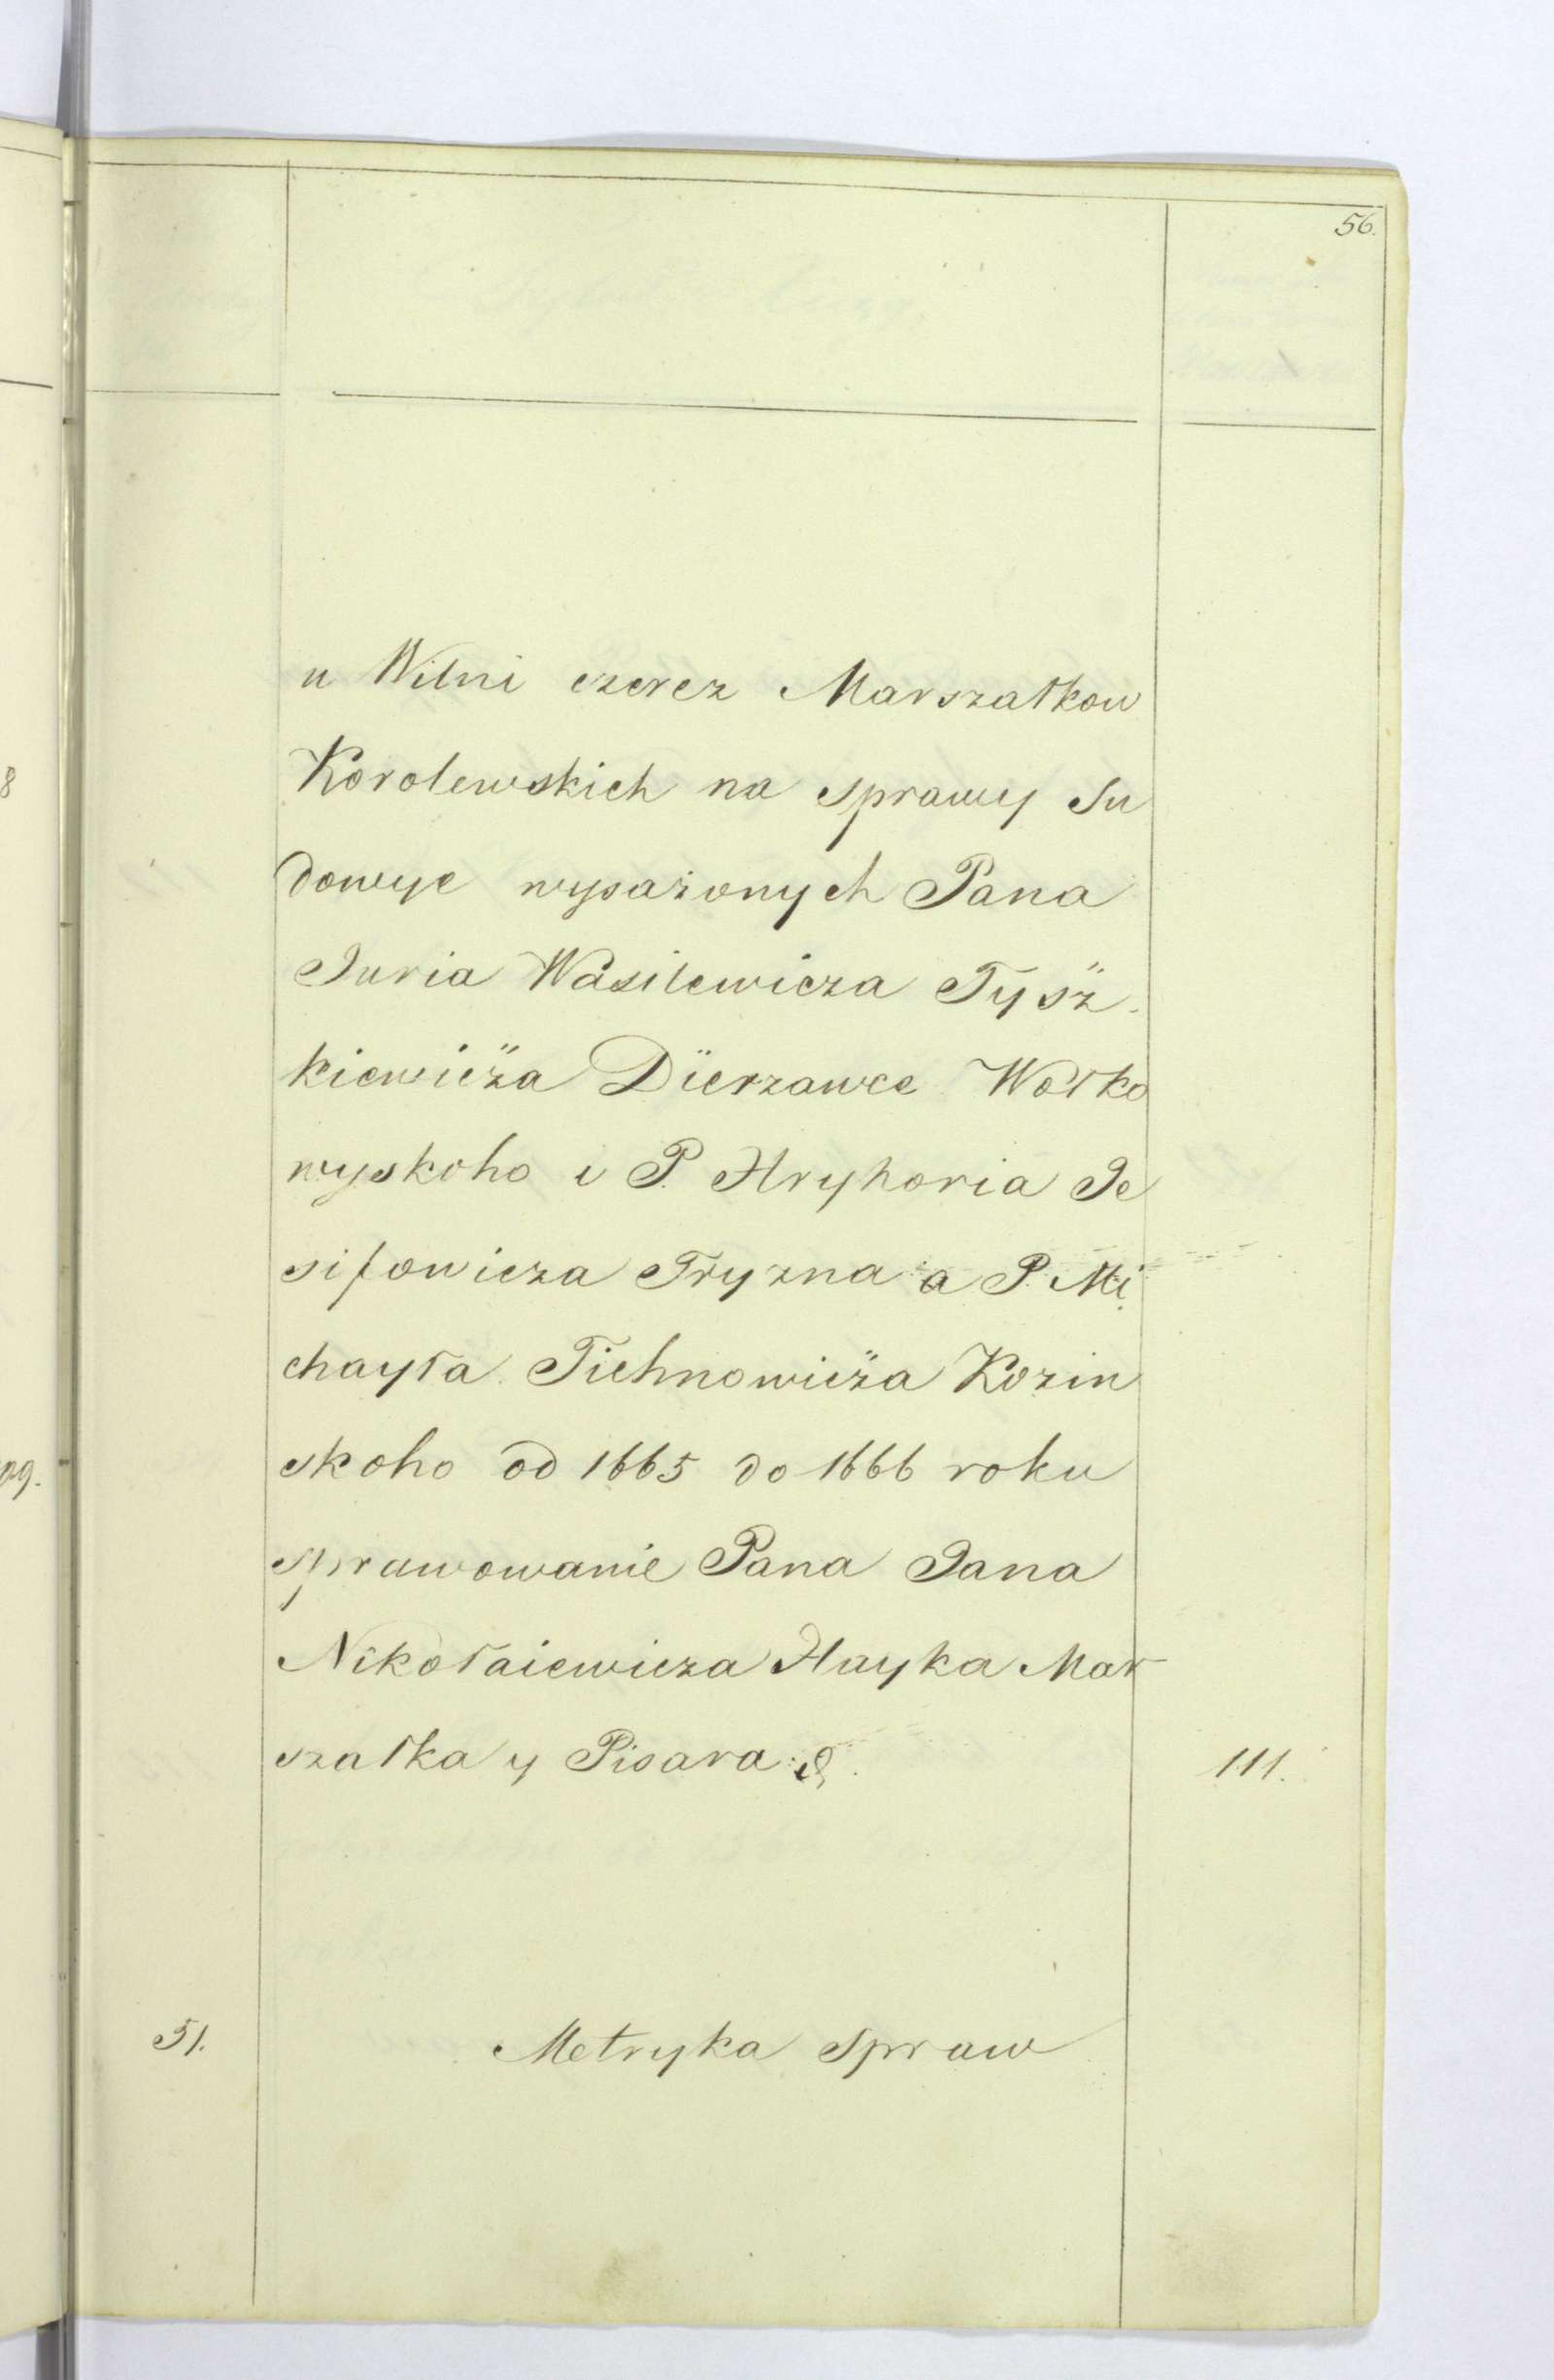 56.
u Wilni czerez Marszałkow
Korolewskich na sprawy Su
dowye wysażonych Pana
Juria Wasilewicza Tysż
kiewicża Dïerzawce Wołko
wyskoho i P. Hryhoria Je
sifowicza Tryzna a P. Mi
chayła Tichnowicża Kozin
skoho od 1665 do 1666 roku
sprawowanie Pana Jana
Nikołaiewicza Hayka Mar
szałka y Pisara
111.
51. Metryka Spraw